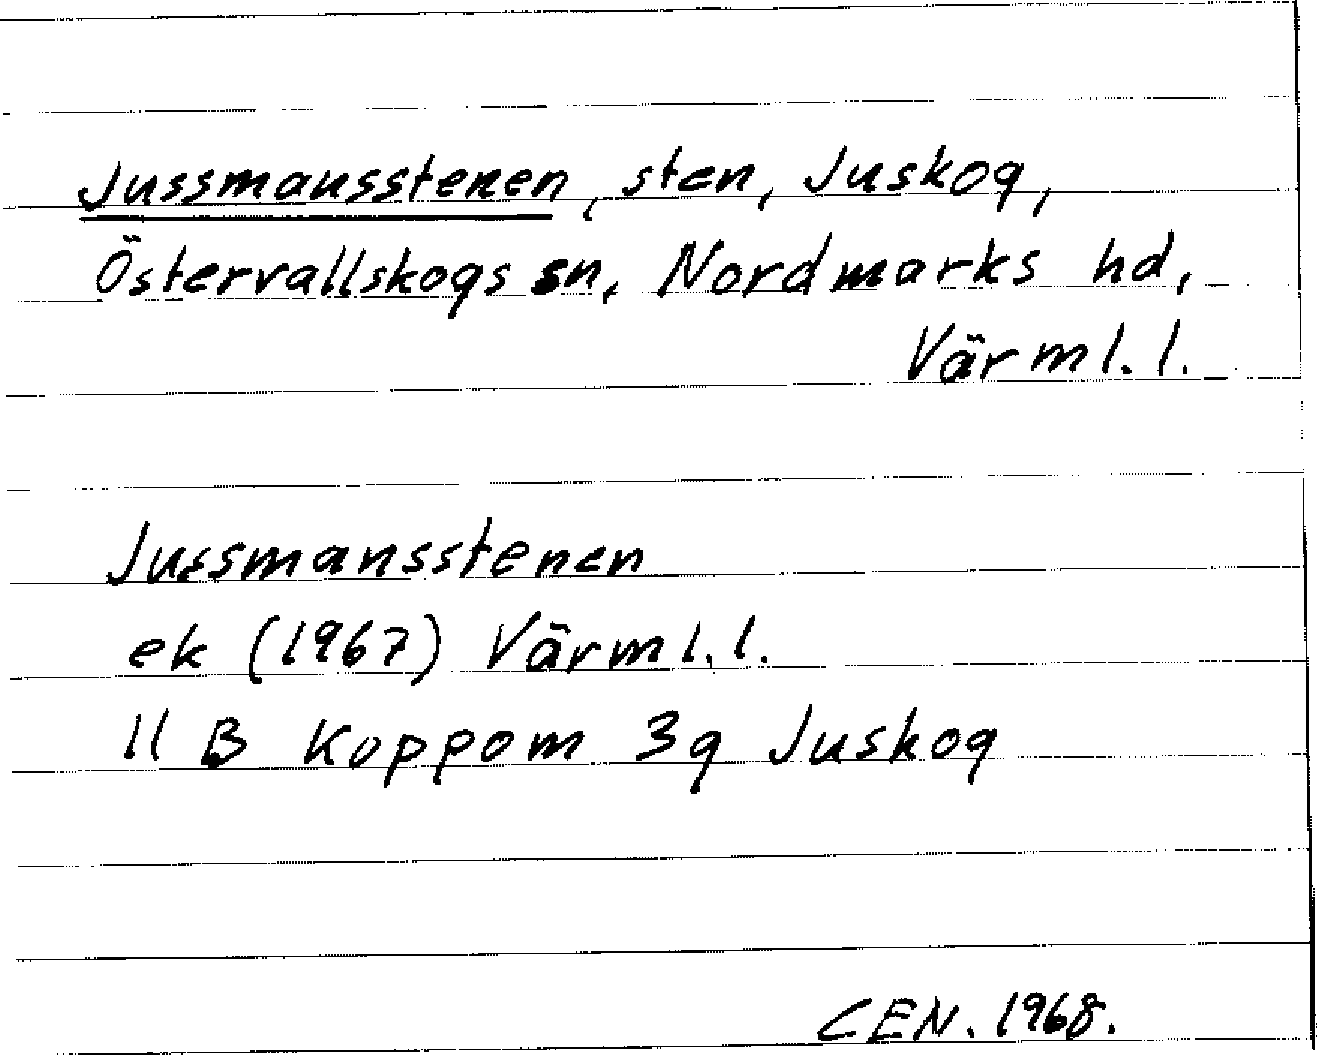 Jussmansstenen, sten, Juskog,
Östervallskogs sn, Nordmarks hd,
Värml. l.
Jussmansstenen
ek (1967) Värml. l.
11 B Koppom 3g Juskog
CEN. 1968.